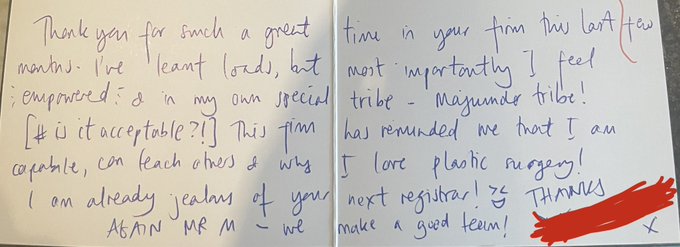 Thank you for such a great time in your firm this last few
months. I've learnt loads, but most importantly I feel
"empowered" & in my own special tribe - Majumder tribe!
[# is it acceptable?!] This firm has reminded me that I am
capable, can teach others & why I love plastic surgery!
I am already jealous of your next registrar! THANKS
AGAIN MR M - we make a good team! x